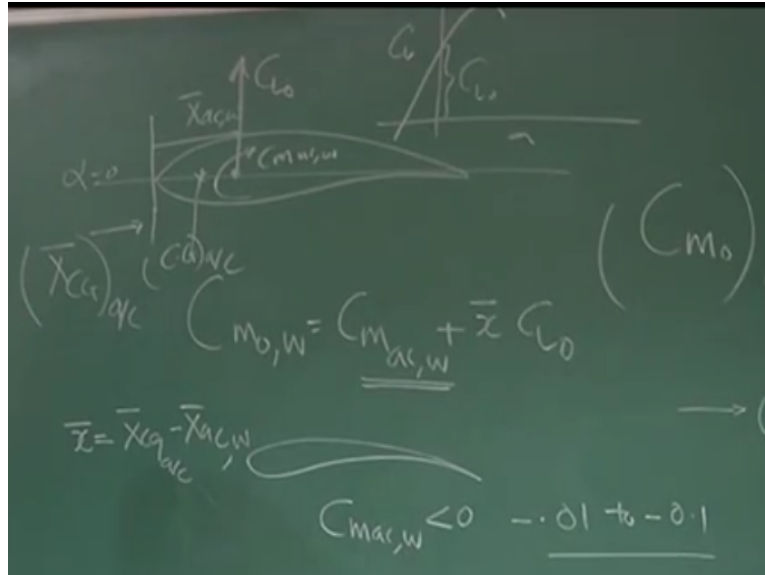 C_L
C_L₀
C_L₀
X̄ac,w
Cmac,w
α=0
(X̄CG)a/c
(CG)a/c
(Cm₀)
Cm₀,w = Cm ac,w + x̄ C_L₀
x̄ = X̄cg a/c - X̄ac,w
Cmac,w <0 -.01 to -0.1